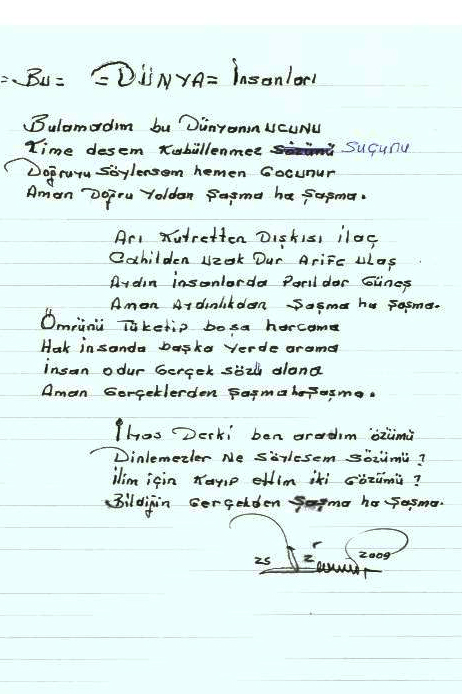 = Bu = = DÜNYA = İnsanları
Bulamadım bu Dünyanın UCUNU
Kime desem Kabüllenmez sözünü suçunu
Doğruyu söylersem hemen Gocunur
Aman Doğru yoldan şaşma ha şaşma.
Arı Kutretten Dışkısı ilaç
Cahilden uzak Dur Arife ulaş
Aydın insanlarda Parıldar Güneş
Aman Aydınlıkdan şaşma ha şaşma.
Ömrünü Tüketip boşa harcama
Hak insanda başka yerde arama
insan odur Gerçek sözü alana
Aman Gerçeklerden şaşma ha şaşma.
İlyas Derki ben aradım özümü
Dinlemezler Ne söylesem sözümü ?
ilim için Kayıp ettim iki Gözümü ?
Bildiğin Gerçekden şaşma ha şaşma.
25 2009